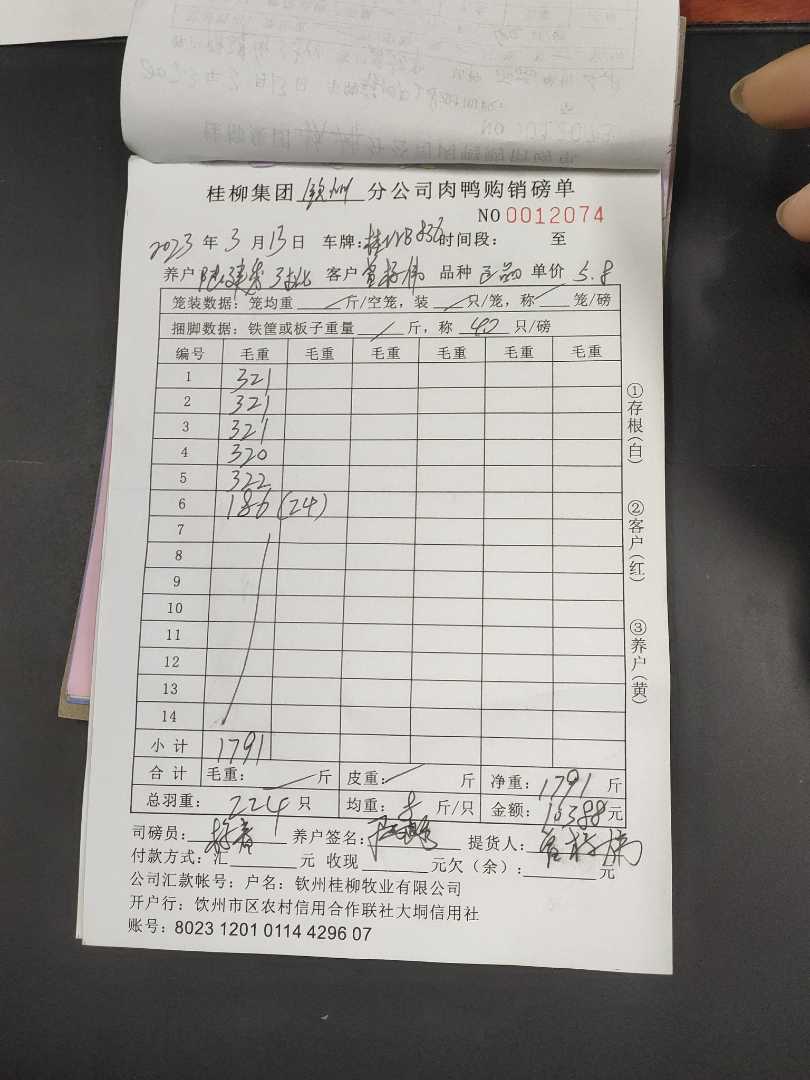 桂柳集团 钦州 分公司肉鸭购销磅单
NO 0012074
2023 年 3 月 13 日 车牌: 时间段: 至
养户 客户 品种 正品 单价 5.8
笼装数据: 笼均重 斤/空笼, 装 只/笼, 称 笼/磅
捆脚数据: 铁筐或板子重量 斤, 称 40 只/磅
编号 毛重 毛重 毛重 毛重 毛重 毛重
1 321
2 321
3 321
4 320
5 322
6 186 (24)
7
8
9
10
11
12
13
14
小计 1791
合计 毛重: 斤 皮重: 斤 净重: 1791 斤
总羽重: 224 只 均重: 8 斤/只 金额: 10388 元
司磅员: 养户签名: 提货人:
付款方式: 汇 元 收现 元欠(余): 元
公司汇款帐号: 户名: 钦州桂柳牧业有限公司
开户行: 饮州市区农村信用合作联社大垌信用社
账号: 8023 1201 0114 4296 07
①存根(白)
②客户(红)
③养户(黄)